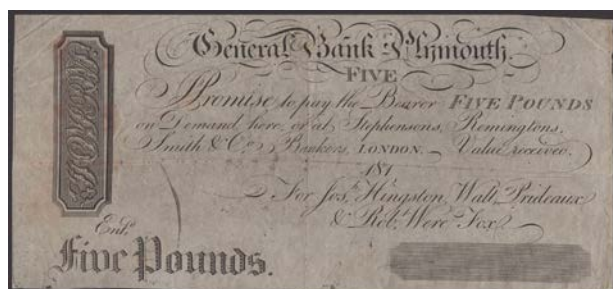 General Bank Plymouth.
FIVE
Promise to pay the Bearer FIVE POUNDS
on Demand, here, or at Stephensons, Remingtons,
Smith & Co. Bankers, LONDON. Value received.
181
For Jos.h Hingston, Walt.r Prideaux
& Rob.t Were Fox
Ent.d
Five Pounds.